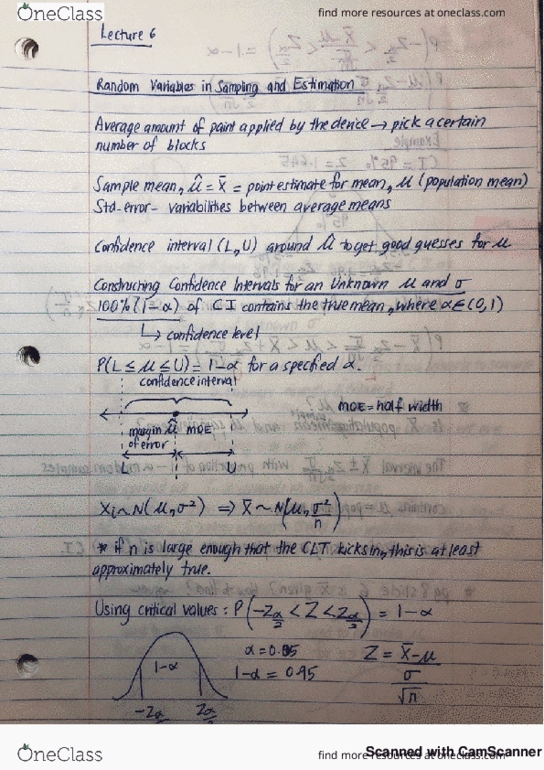 OneClass
find more resources at oneclass.com
Lecture 6
Random Variables in Sampling and Estimation
Average amount of paint applied by the device → pick a certain
number of blocks
Sample mean, μ̂ = x̄ = point estimate for mean, μ (population mean)
Std-error - variabilities between average means
Confidence interval (L, U) around μ̂ to get good guesses for μ
Constructing Confidence Intervals for an Unknown μ and σ
100% (1-α) of CI contains the true mean, where α∈(0,1)
↳ confidence level
P(L ≤ μ ≤ U) = 1-α for a specified α.
confidence interval
MOE = half width
margin of error μ̂ MOE
L U
Xi ~ N(μ, σ²) ⇒ X̄ ~ N(μ, σ²/n)
* if n is large enough that the CLT kicks in, this is at least
approximately true.
Using critical values: P(-Zα/2 < Z < Zα/2) = 1-α
α = 0.05
1-α
1-α = 0.95
Z = X̄-μ / σ/√n
-Zα/2 Zα/2
OneClass
find more resources at oneclass.com
Scanned with CamScanner